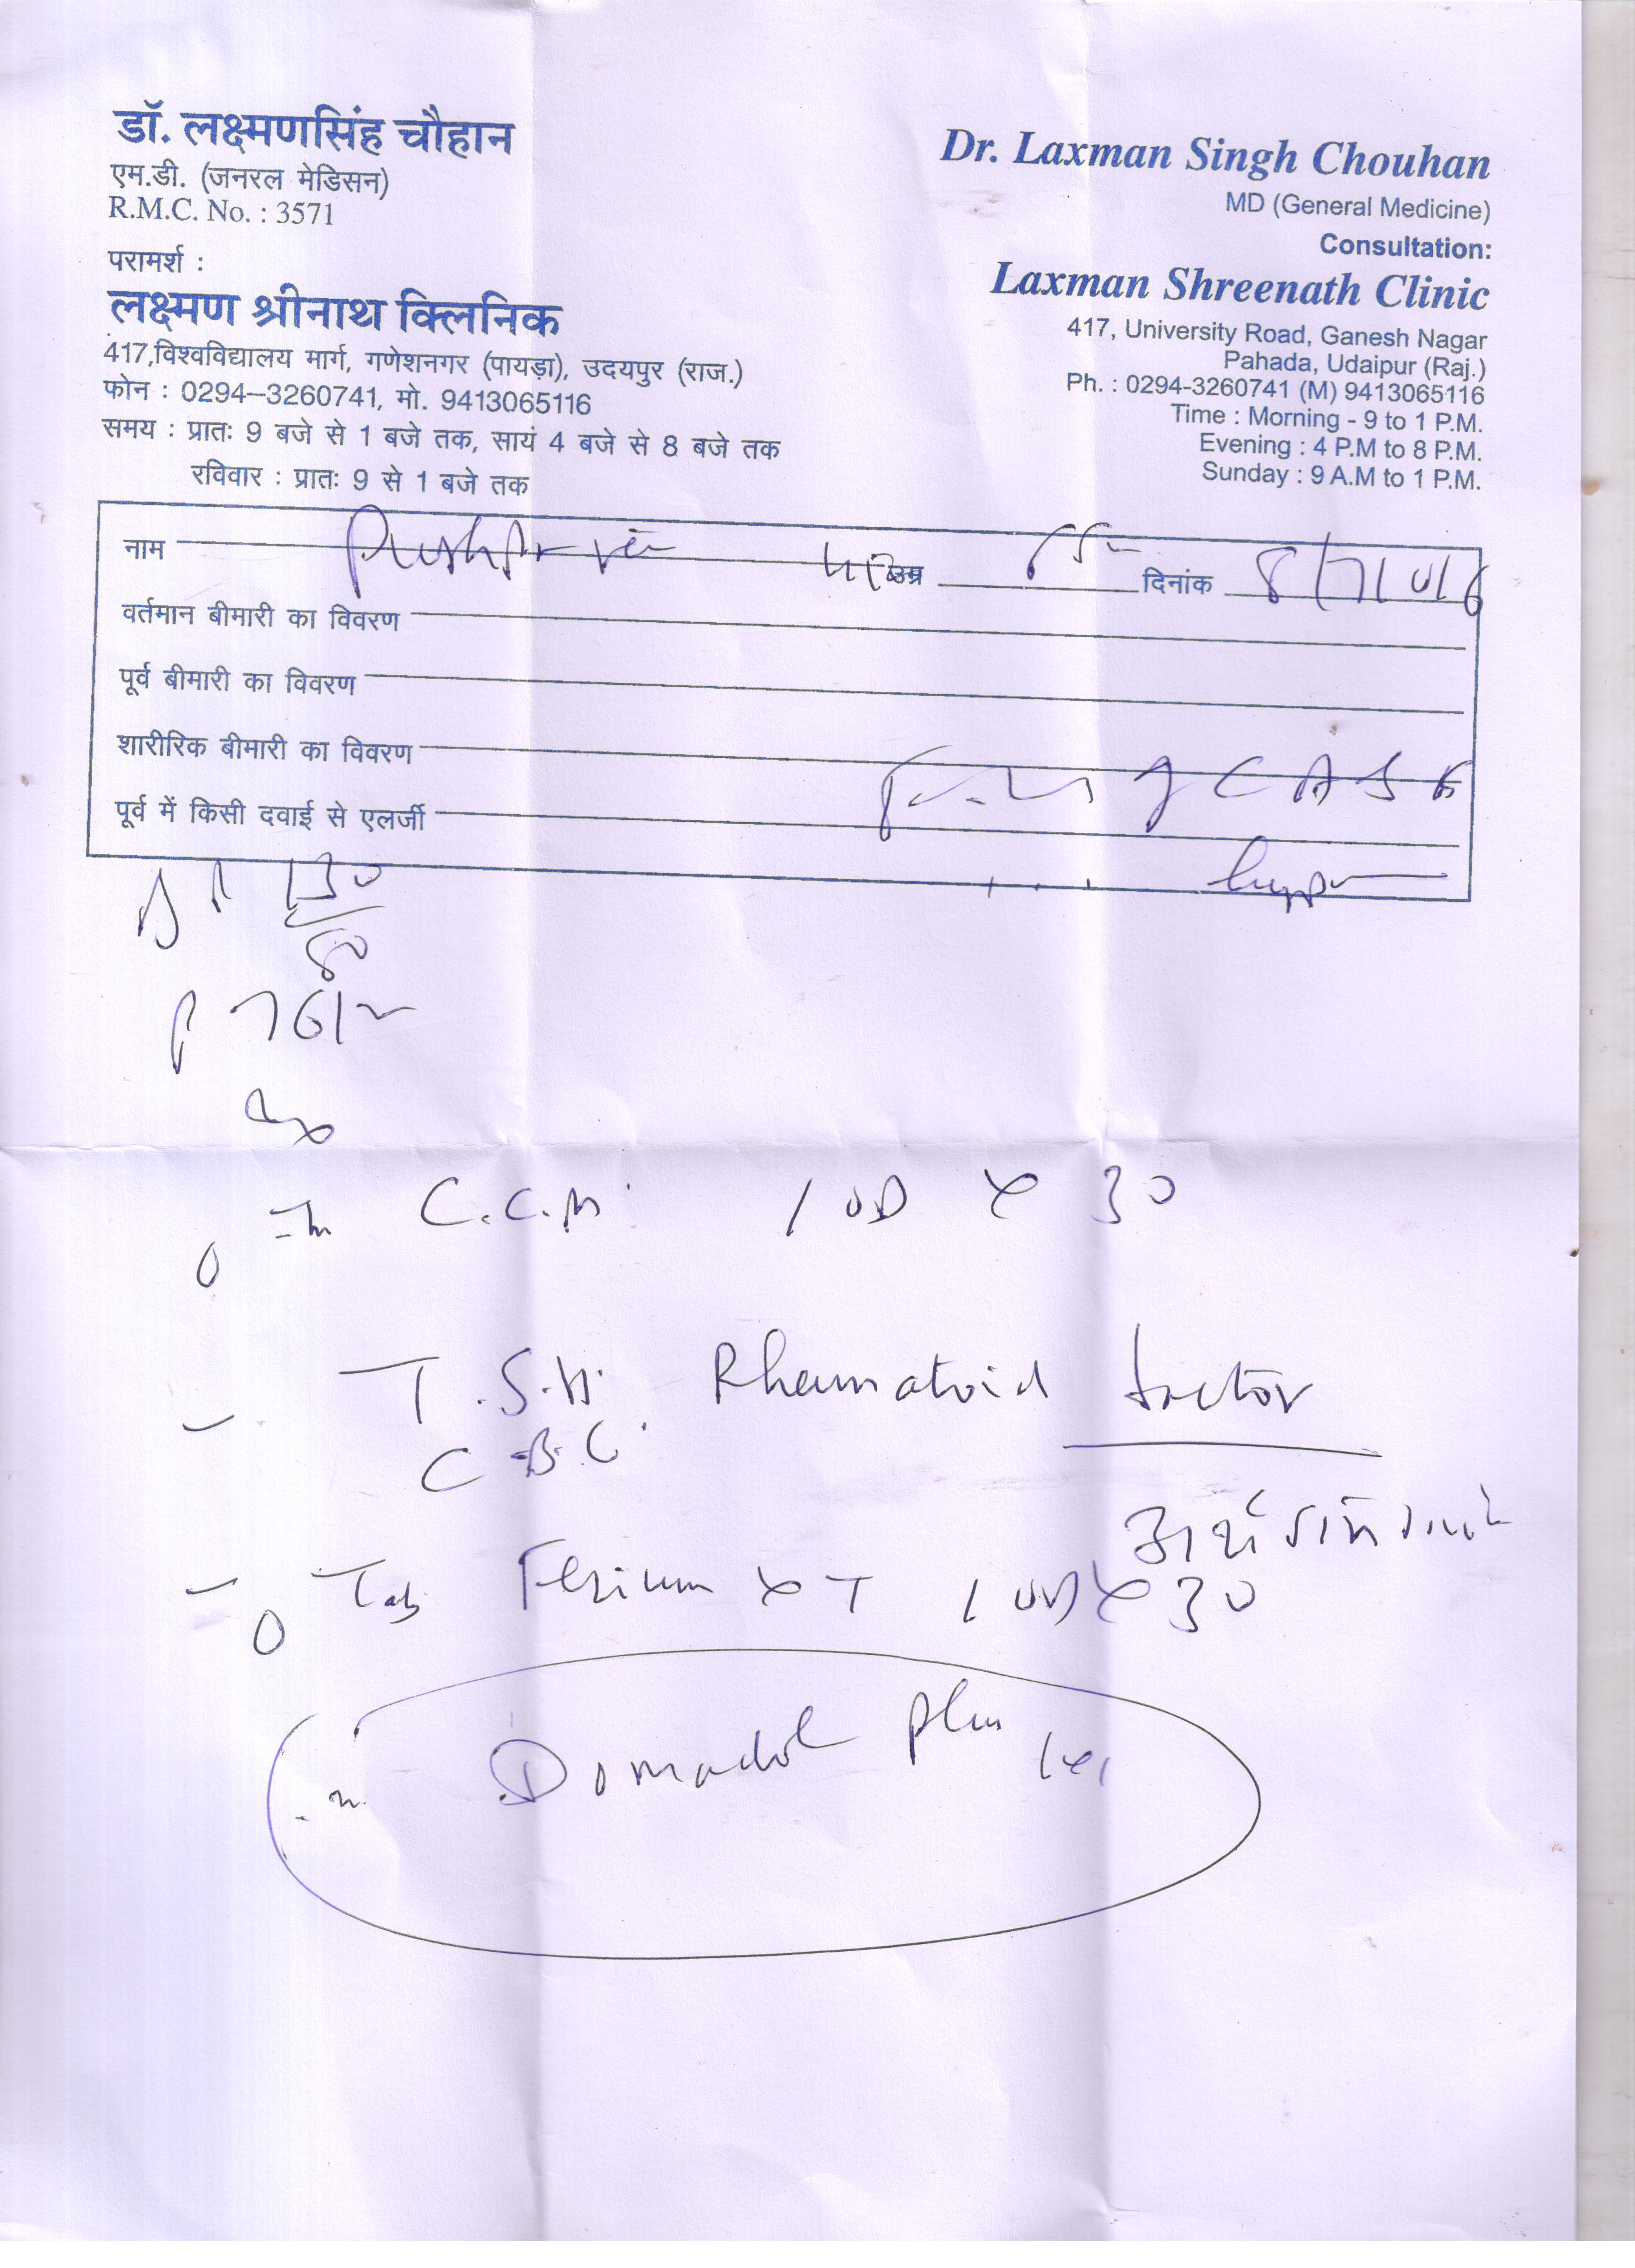 डॉ. लक्ष्मणसिंह चौहान
एम.डी. (जनरल मेडिसन)
R.M.C. No. : 3571
परामर्श :
लक्ष्मण श्रीनाथ क्लिनिक
417,विश्वविद्यालय मार्ग, गणेशनगर (पायड़ा), उदयपुर (राज.)
फोन : 0294-3260741, मो. 9413065116
समय : प्रातः 9 बजे से 1 बजे तक, सायं 4 बजे से 8 बजे तक
रविवार : प्रातः 9 से 1 बजे तक
Dr. Laxman Singh Chouhan
MD (General Medicine)
Consultation:
Laxman Shreenath Clinic
417, University Road, Ganesh Nagar
Pahada, Udaipur (Raj.)
Ph. : 0294-3260741 (M) 9413065116
Time : Morning - 9 to 1 P.M.
Evening : 4 P.M to 8 P.M.
Sunday : 9 A.M to 1 P.M.
नाम उम्र दिनांक
वर्तमान बीमारी का विवरण
पूर्व बीमारी का विवरण
शारीरिक बीमारी का विवरण
पूर्व में किसी दवाई से एलर्जी
130
80
P 76/
C.C.M. 1 OD x 30
T.S.H. Rheumatoid factor
C.B.C.
Tab XT 1 OD x 30
Domadol Plus 1x1